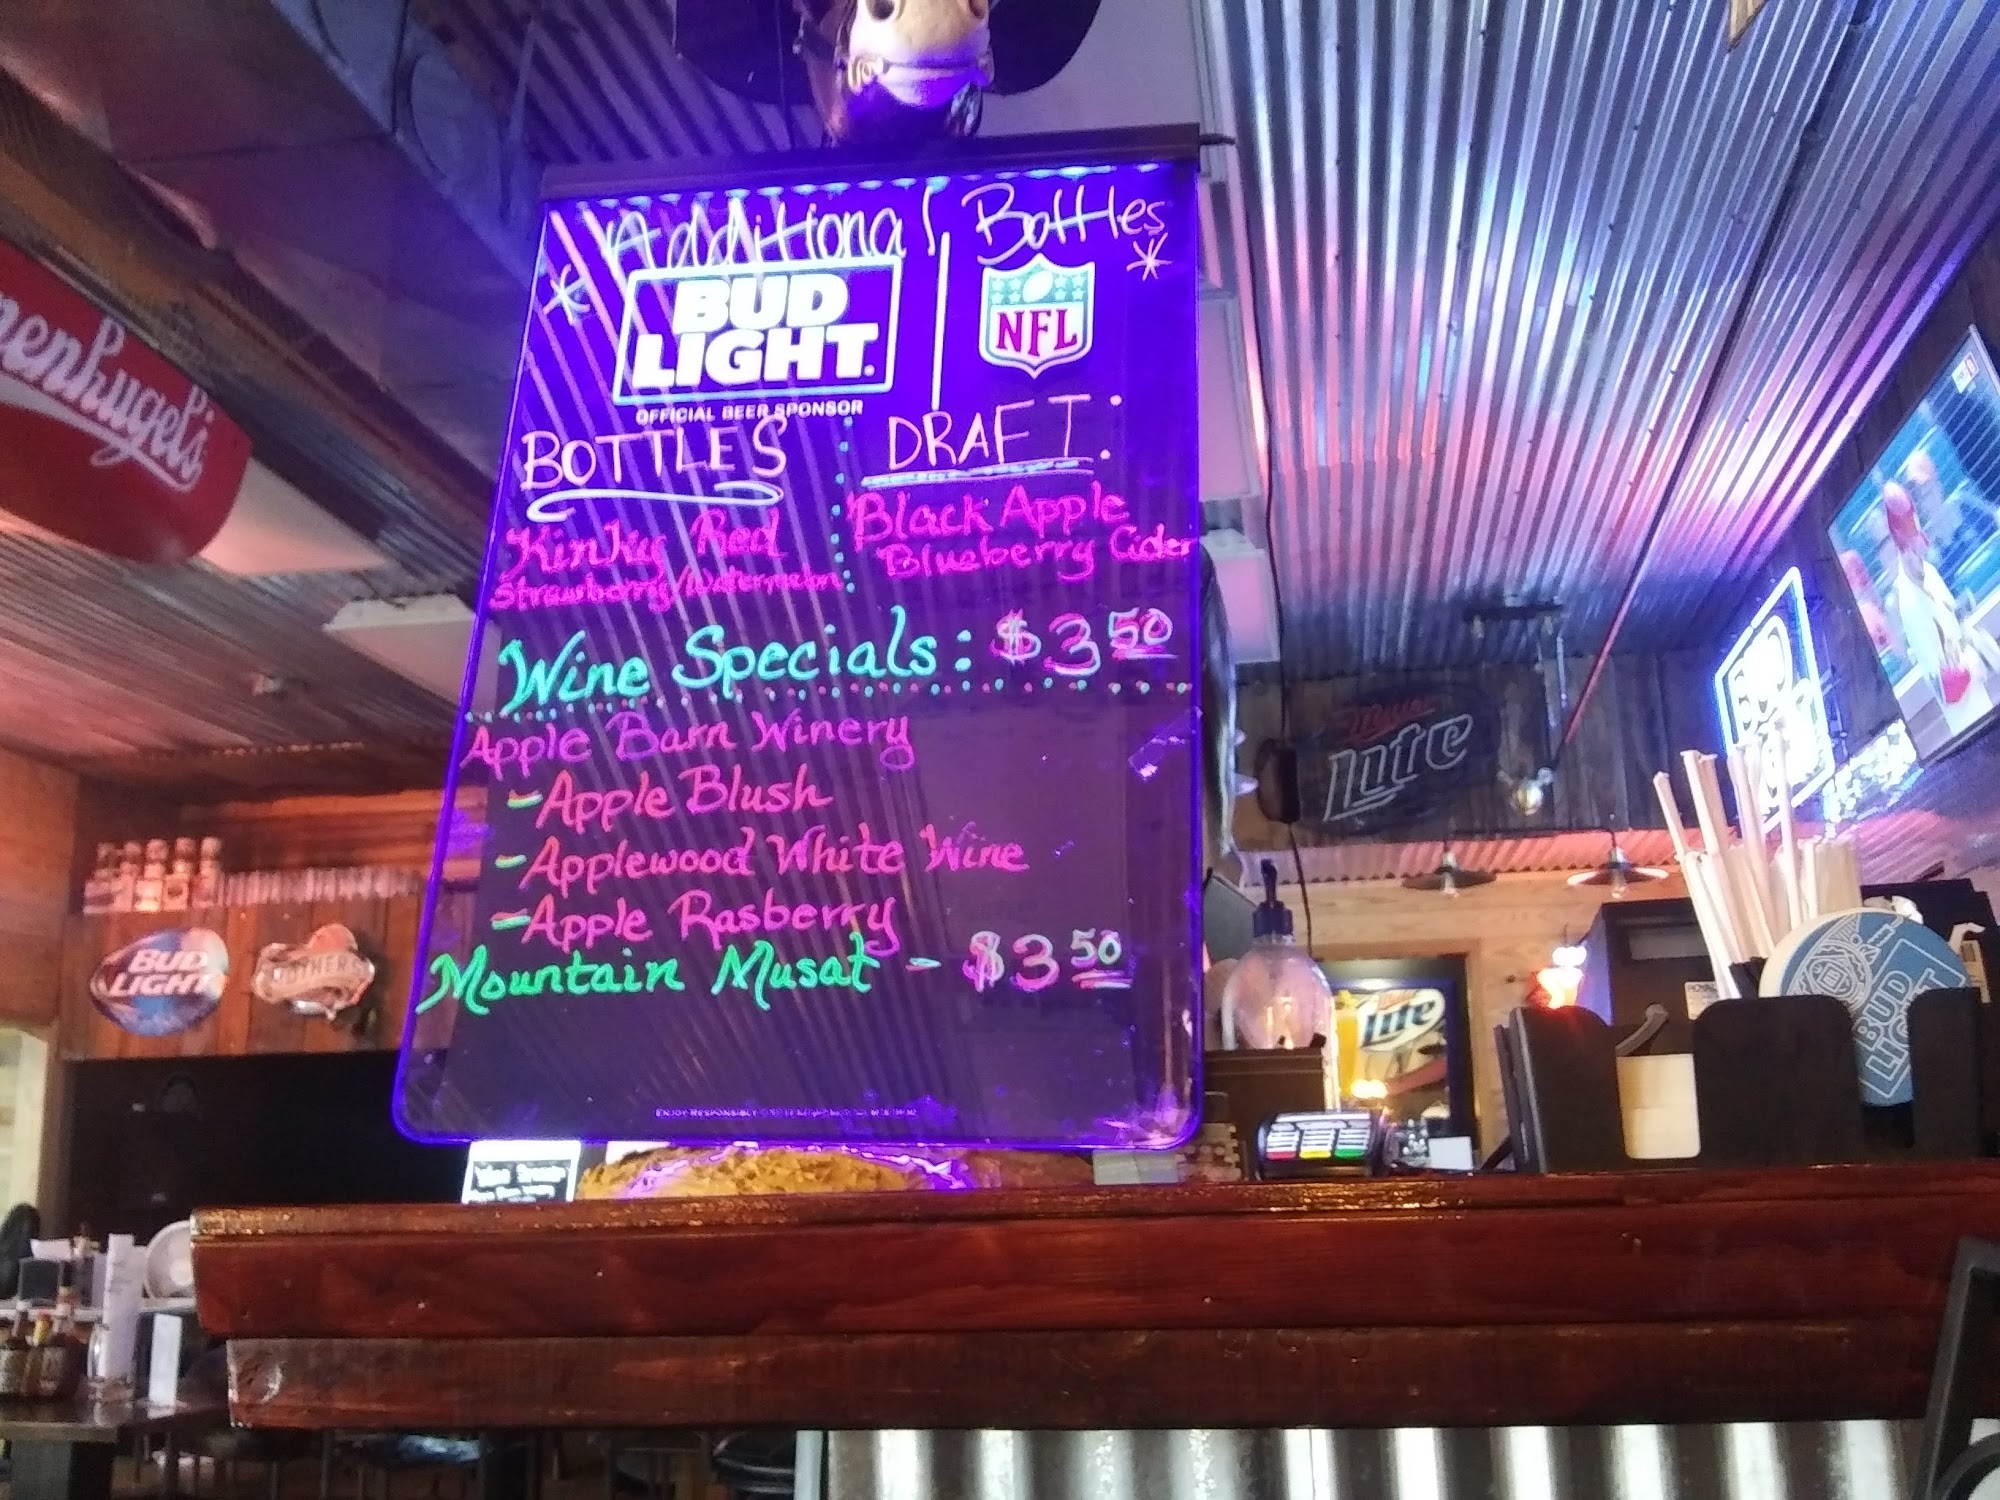 Additional Bottles
BUD LIGHT.
OFFICIAL BEER SPONSOR
NFL
BOTTLES
DRAFT:
Kinky Red
Strawberry/Watermelon
Black Apple
Blueberry Cider
Wine Specials: $3 50
Apple Barn Winery
- Apple Blush
- Applewood White Wine
- Apple Rasberry
Mountain Musat - $3 50
ENJOY RESPONSIBLY
enhugel's
BUD
LIGHT
Miller
Lite
Lite
BUD
LIGHT